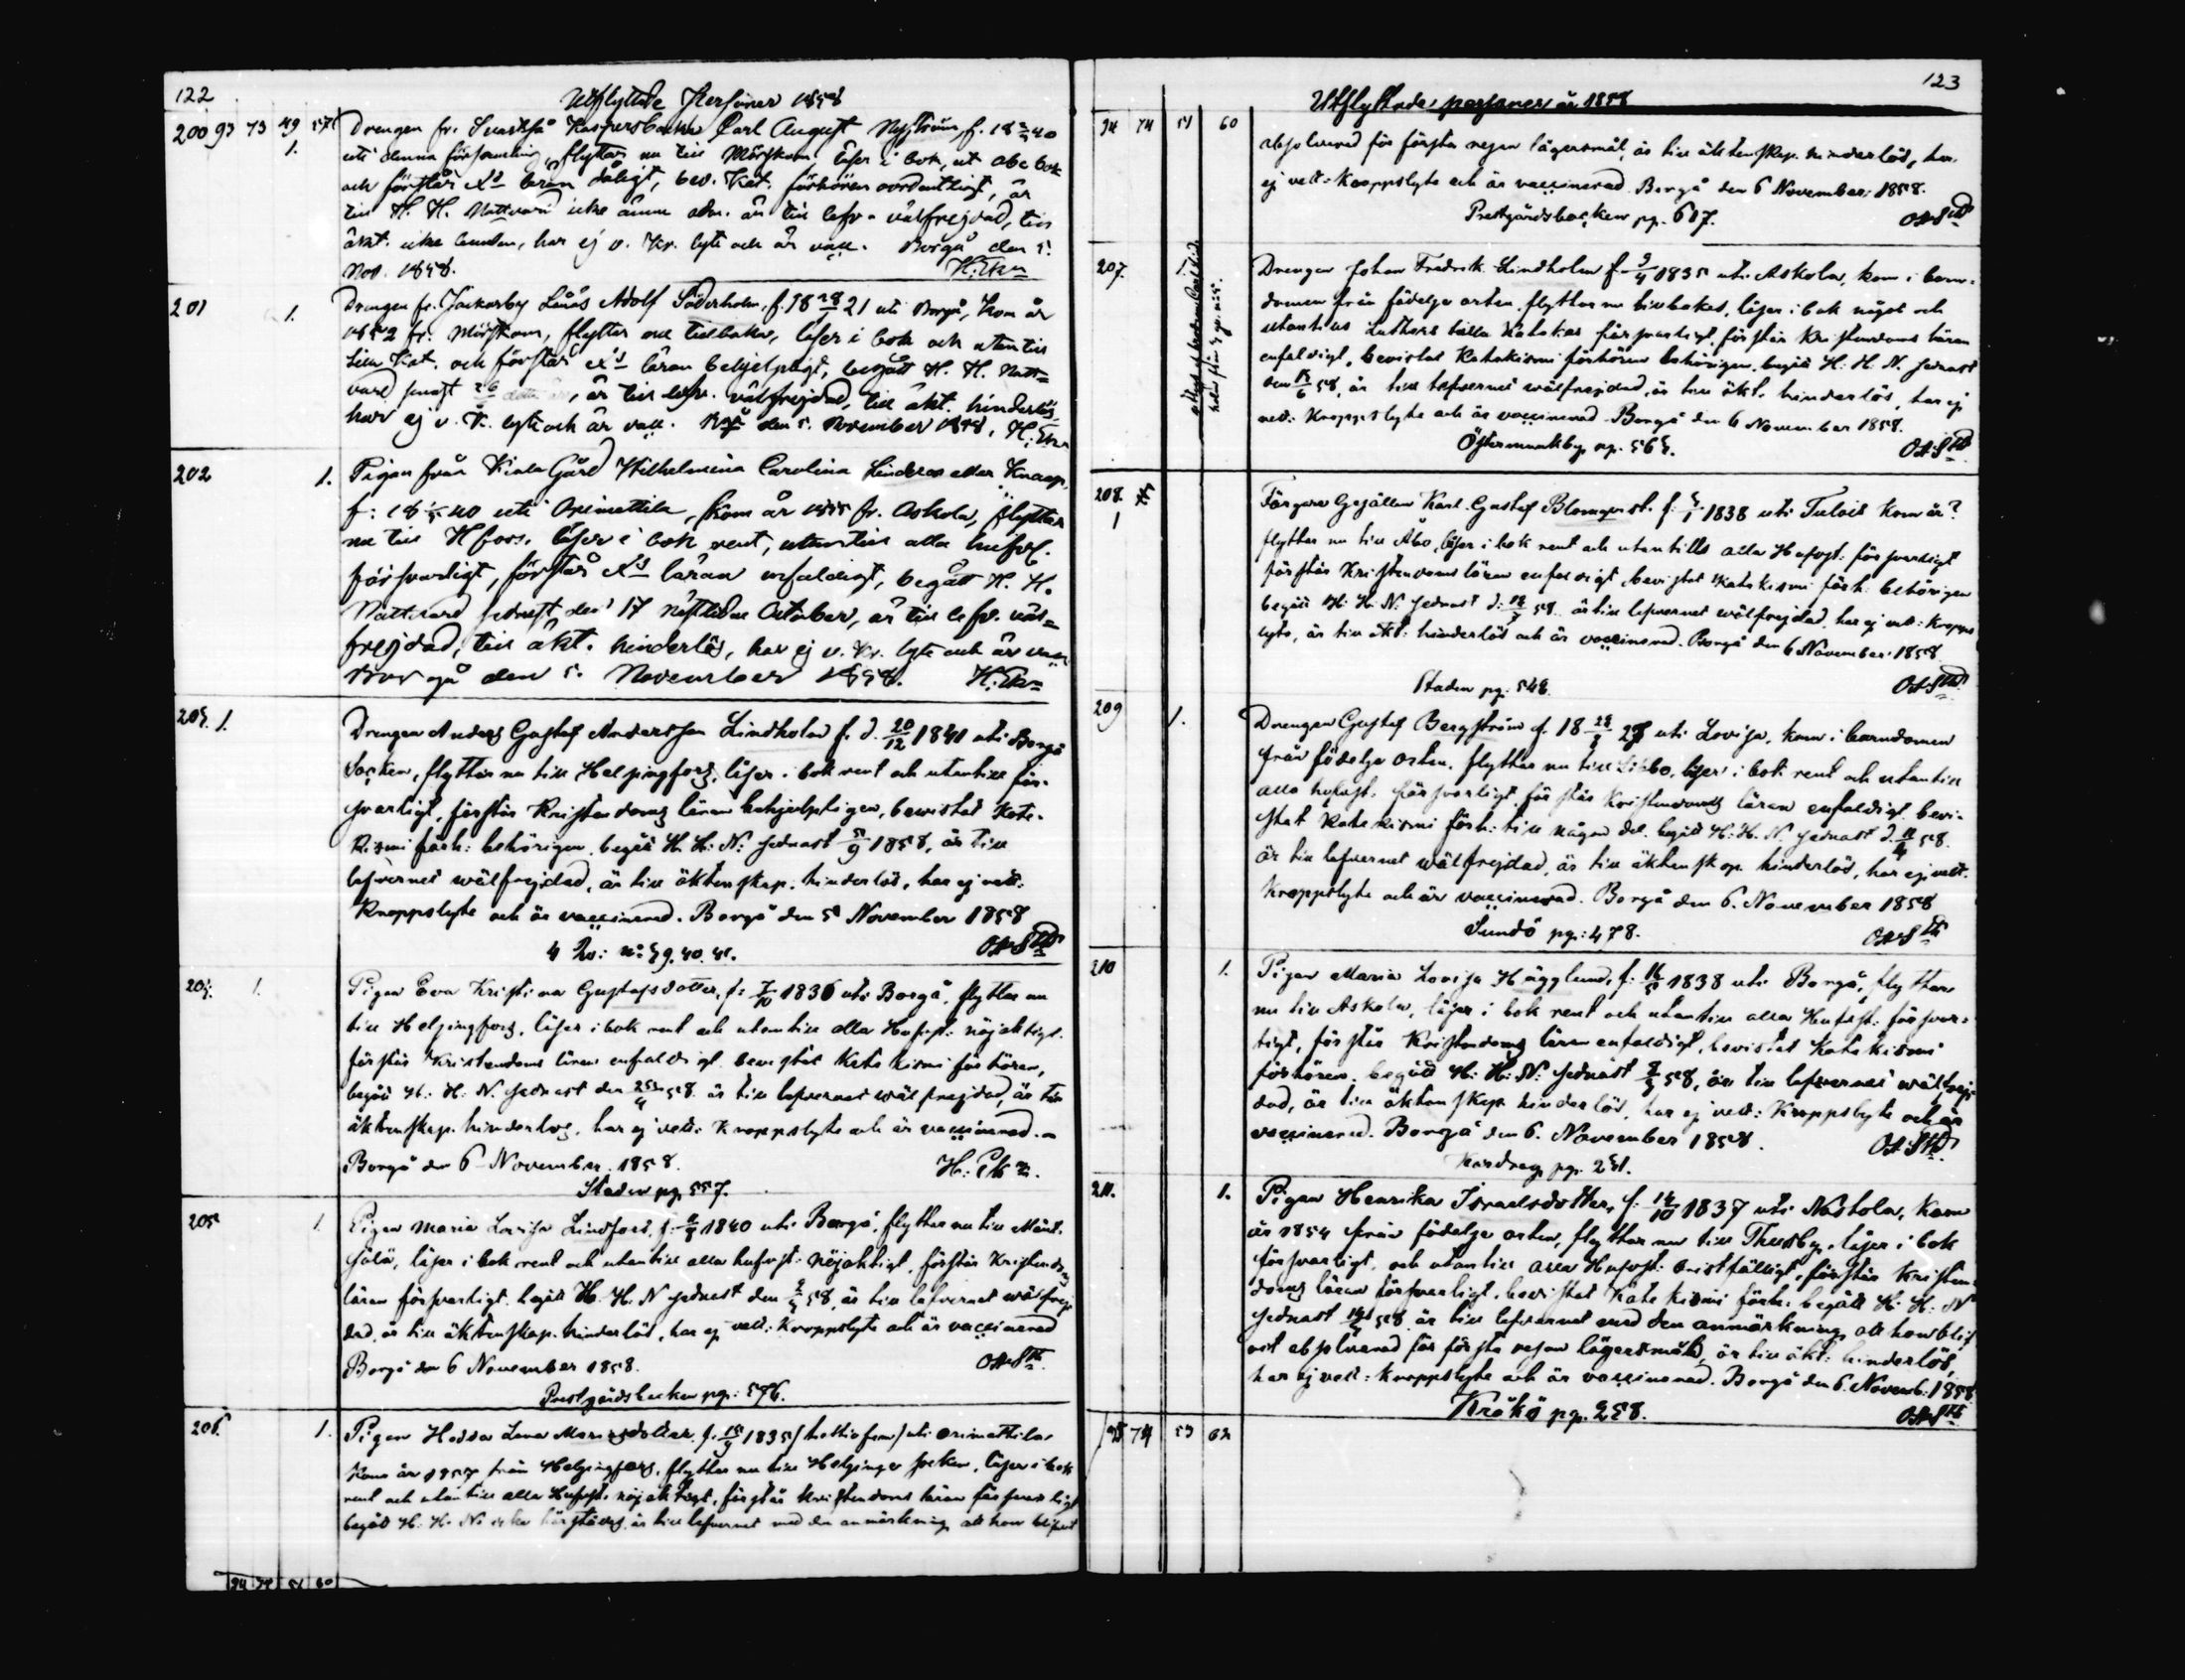 122
Utflyttade Personer 1858
200 93 73 49 57
1.
Drengen fr. Svartså Kaspersbacka Carl August Nyström, f. 18 40
uti denna församling, flyttar nu till Mörskom, läser i bok, ut. abc bok
och förstår Xds läran dåligt, bev. Kat. förhören oordentligt, är
till H. H. Nattvard icke ännu adm. är till lefv. välfrejdad, till
äkt. icke bunden, har ej v. Kr. lyte och är vacc. Borgå den 5.
Nov. 1858. H. Ekn
201 1.
Drengen fr. Jackarby Linås Adolf Söderholm, f. 18 21 uti Borgå, Kom år
1852 fr. Mörskom, flyttar nu tillbaka, läser i bok och utantill
Lilla Kat. och förstår Xds läran behjelpligt, begått H. H. Natt=
vard senast, är till lefv. välfrejdad, till äkt. hinderlös,
har ej v. K. lyte och är vacc. Bgå den 5. November 1858. H. Ekn
202 1.
Pigan från Kiala Gård Wilhelmina Carolina Linderos eller Knaap,
f: 18 40 uti Orimattila, kom år 1855 fr. Askola, flyttar
nu till Hfors. läser i bok rent, utantill alla hufvs.
försvarligt, förstår Xds läran enfaldigt, begått H. H.
Nattvard sednast den 17 nästledne October, är till lefv. väl=
frejdad, till äkt. hinderlös, har ej v. Kr. lyte och är vacc
Borgå den 5. November 1858. H. Ekn
203. 1.
Drengen Anders Gustaf Andersson Lindholm f. d. 20/12 1841 uti Borgå
Socken, flyttar nu till Helsingfors, läser i bok rent och utantill för-
svarligt, förstår Kristendoms läran behjelpligen, bevistat Kate-
kismi förh: behörigen, begått H. H: N: sednast 5/9 1858, är till
lefvernet wälfrejdad, är till äktenskap hinderlös, har ej vett:
Kroppslyte och är vaccinerad. Borgå den 5 November 1858
4 Ro: No 39. 40. 41.
204. 1.
Pigan Eva Kristina Gustafsdotter, f: 7/10 1836 uti Borgå, flyttar nu
till Helsingfors, läser i bok rent och utantill alla Hufvst: nöjaktigt.
förstår Kristendoms läran enfaldigt bevistat Kate kismi förhören,
begått H: H: N. sednast den 25/4 58. är till lefvernet wälfrejdad, är till
äktenskap hinderlös, har ej vett: Kroppslyte och är vaccinerad.
Borgå den 6 November 1858. H: Ekn.
Staden pg. 557.
205 1.
Pigan Maria Lovisa Lindfors, f: 1840 uti Borgå, flyttar nu till Mänt-
sälä, läser i bok rent och utantill alla hufvst: nöjaktigt, förstår Kristendoms
läran försvarligt. begått H. H. N sednast den 58, är till lefvernet wälfrej-
dad, är till äktenskap hinderlös, har ej vett: Kroppslyte och är vaccinerad
Borgå den 6 November 1858.
Prestgårdsbacken pg: 576.
206. 1.
Pigan Hedda Lena Mariasdotter, f. 15/9 1835 /trettiofem/ uti Orimattila
Kom år 1857 från Helsingfors, flyttar nu till Helsinge socken, läser i bok
rent och utantill alla Hufvst. nöjaktigt, förstår Kristendoms läran försvarligt
begått H. H. N är till lefvernet med den anmärkning att hon blifvit
94 74 51 60
123
Utflyttade personer år 1858
94 74 51 60
absolverad för första resan lägersmål, är till äktenskap hinderlös, har
ej vett: Kroppslyte och är vaccinerad. Borgå den 6 November: 1858.
Prestgårdsbacken pg. 617.
207.
Drengen Johan Fredrik Lindholm f. 3/4 1835 uti Askola, kom i barn-
domen från födelse orten, flyttar nu tillbakas, läser i bok något och
utantill Luthers lilla Katekes försvarligt, förstår Kristendoms läran
enfaldigt, bevistat Katekismi förhören behörigen, begått H. H. N. sednast
den 58, är till lefvernet wälfrejdad, är till äkt. hinderlös, har ej
vett: Kroppslyte och är vaccinerad. Borgå den 6 November 1858.
Östermunkby pg. 563.
208. 1
Färgare Gesällen Karl Gustaf Blomqvist. f. 1838 uti Tulois kom år?
flyttar nu till Åbo, läser i bok rent och utantill alla Hufvst: försvarligt
förstår Kristendoms läran enfaldigt bevistat Katekismi förh: behörigen
begått H: H: N: sednast d: 58. är till lefvernet wälfrejdad, har ej vett: Kropps
lyte, är till äkt: hinderlös och är vaccinerad. Borgå den 6 November 1858
Staden pg: 548.
209 1.
Drengen Gustaf Bergström f. 18 uti Lovisa, kom i barndomen
från födelse orten, flyttar nu till Sibbo, läser i bok rent och utantill
alla hufvst. försvarligt förstår Kristendoms läran enfaldigt, bevi-
stat Katekismi förh: till någon del. begått H: H. N sednast d. 58.
är till lefvernet wälfrejdad, är till äktenskap hinderlös, har ej vett.
Kroppslyte och är vaccinerad. Borgå den 6. November 1858
Sundö pg: 478.
210 1.
Pigan Maria Lovisa Hägglund, f: 16/5 1838 uti Borgå, flyttar
nu till Askola, läser i bok rent och utantill alla Hufvst: försvar-
ligt, förstår Kristendoms läran enfaldigt, bevistat Katekismi
förhören. begått H: H: N: sednast 58, är till lefvernet wälfrej
dad, är till äktenskap hinderlös, har ej vett: Kroppslyte och är
vaccinerad. Borgå den 6. November 1858.
211. 1.
Pigan Henrika Israelsdotter, f: 14/10 1837 uti Nastola, kom
år 1854 från födelse orten, flyttar nu till Thusby, läser i bok
försvarligt, och utantill alla Hufvst: bristfälligt, förstår Kristen-
doms läran försvarligt, bevistat Kate kismi förh: begått H: H: N
sednast 58 är till lefvernet med den anmärkning, att hon blif
vit absolverad för första resan lägersmål, är till äkt: hinderlös,
har ej vett: kroppslyte och är vaccinerad. Borgå den 6. Novemb: 1858
Kråkö pg. 258.
74 53 62